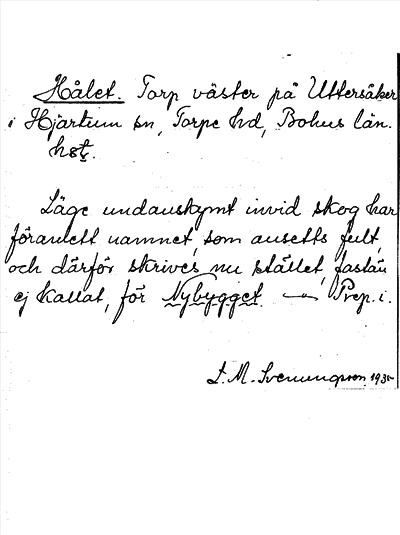 Hålet. Torp väster på Uttersåker
i Hjärtum sn, Torpe hd, Bohus län.
Läge undanskymt invid skog har
föranlett namnet, som ansetts fult,
och därför skrives nu stället, fastän
ej kallat, för Nybygget. — Prep. i.
L. M. Svenungsson 1935